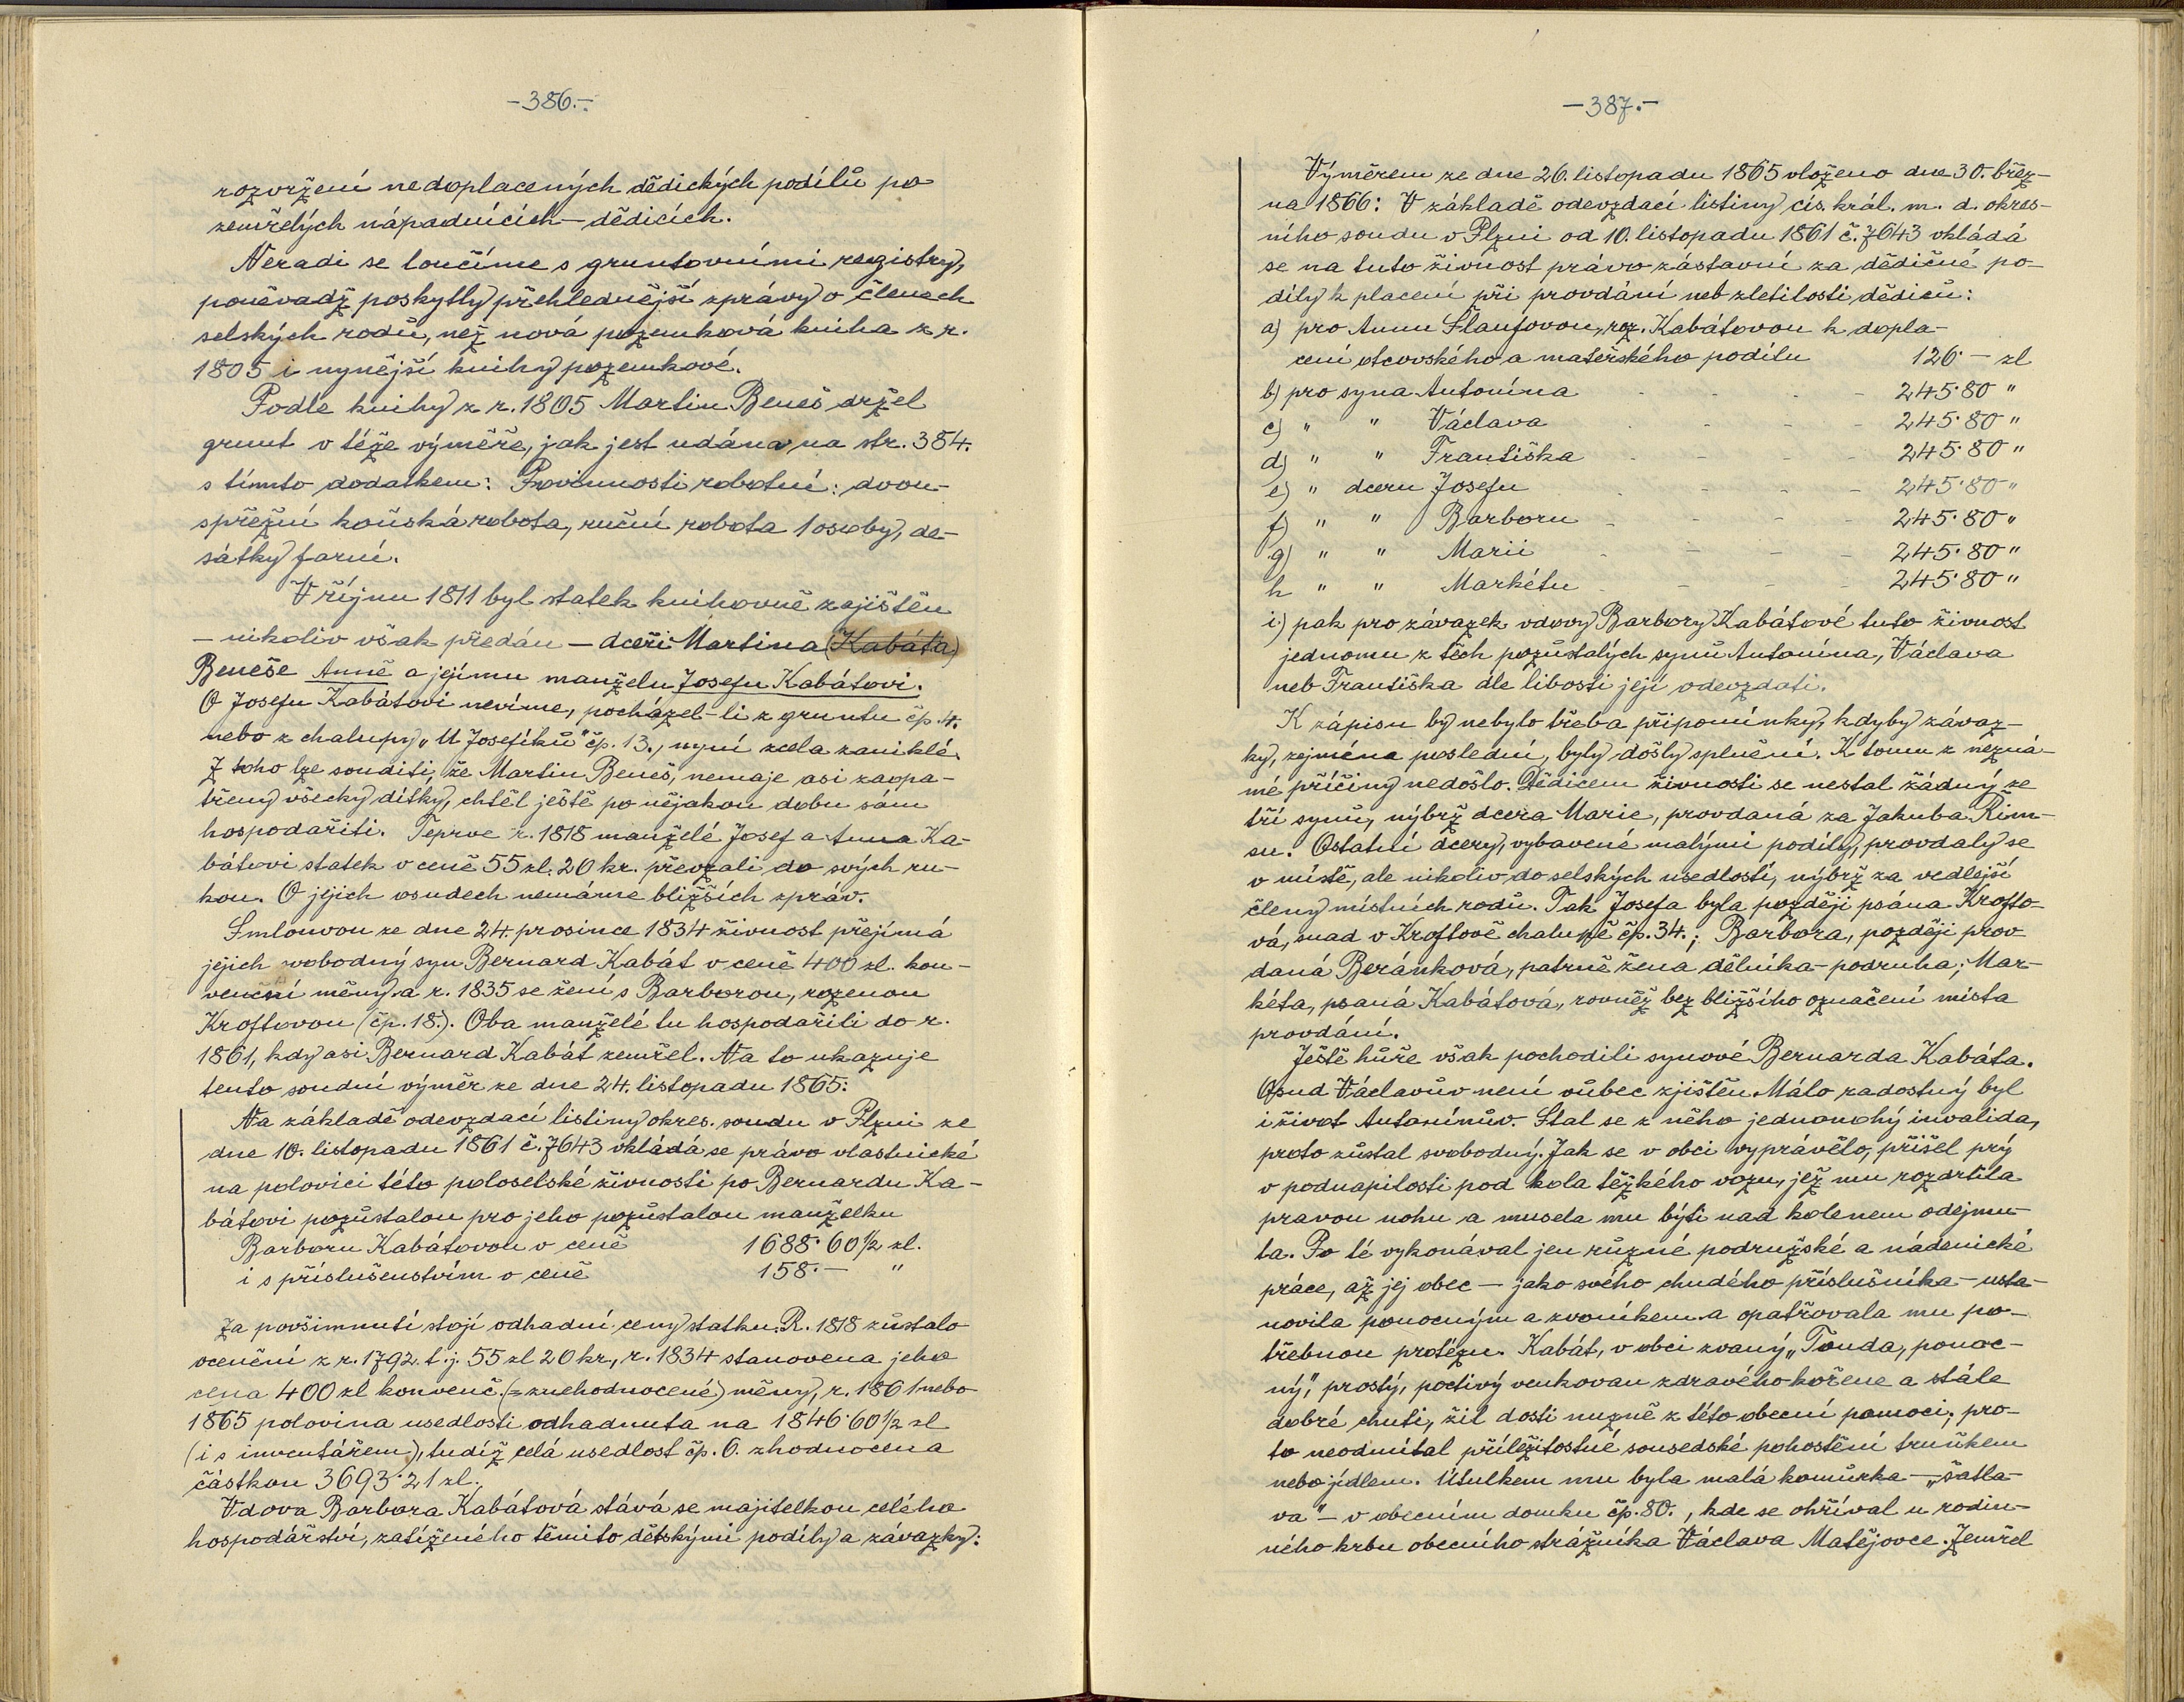 -386.-
rozvržení nedoplacených dědických podílů po
zemřelých nápadnících - dědicích.
Neradi se loučíme s gruntovními registry,
poněvadž poskytly přehlednější zprávy o členech
selských rodů, než nová pozemková kniha z r.
1805 i nynější knihy pozemkové.
Podle knihy z r. 1805 Martin Beneš držel
grunt v téže výměře, jak jest udána na str. 384.
s tímto dodatkem: Povinnosti robotní: dvou-
spřežní koňská robota, ruční robota 1 osoby, de-
sátky farní.
V říjnu 1811 byl statek knihovně zajištěn
- nikoliv však předán - dceři Martina (Kabáta)
Beneše Anně a jejímu manželu Josefu Kabátovi.
O Josefu Kabátovi nevíme, pocházel-li z gruntu čp. 4.
nebo z chalupy „U Josefíků" čp. 13., nyní zcela zaniklé.
Z toho lze souditi, že Martin Beneš, nemaje asi zaopa-
třeny všecky dítky, chtěl ještě po nějakou dobu sám
hospodařiti. Teprve r. 1818 manželé Josef a Anna Ka-
bátovi statek v ceně 55 zl. 20 kr. převzali do svých ru-
kou. O jejich osudech nemáme bližších zpráv.
Smlouvou ze dne 24. prosince 1834 živnost přejímá
jejich svobodný syn Bernard Kabát v ceně 400 zl. kon-
venční měny a r. 1835 se žení s Barborou, rozenou
Kroftovou (čp. 18.). Oba manželé tu hospodařili do r.
1861, kdy asi Bernard Kabát zemřel. Na to ukazuje
tento soudní výměr ze dne 24. listopadu 1865:
Na základě odevzdací listiny okres. soudu v Plzni ze
dne 10. listopadu 1861 č. 7643 vkládá se právo vlastnické
na polovici této poloselské živnosti po Bernardu Ka-
bátovi pozůstalou pro jeho pozůstalou manželku
Barboru Kabátovou v ceně 1688·60½ zl.
i s příslušenstvím v ceně 158.- "
Za povšimnutí stojí odhadní ceny statku. R. 1818 zůstalo
ocenění z r. 1792 t.j. 55 zl 20 kr., r. 1834 stanovena jeho
cena 400 zl konvenč. (= znehodnocené) měny, r. 1861 nebo
1865 polovina usedlosti odhadnuta na 1846·60½ zl
(i s inventářem), tudíž celá usedlost čp. 6. zhodnocena
částkou 3693·21 zl.
Vdova Barbora Kabátová stává se majitelkou celého
hospodářství, zatíženého těmito dětskými podíly a závazky:
-387.-
Výměrem ze dne 26. listopadu 1865 vloženo dne 30. břez-
na 1866: V základě odevzdací listiny cís. král. m. d. okres-
ního soudu v Plzni od 10. listopadu 1861 č. 7643 vkládá
se na tuto živnost právo zástavní za dědičné po-
díly k placení při provdání neb zletilosti dědiců:
a) pro Annu Šlaufovou, roz. Kabátovou k dopla-
cení otcovského a mateřského podílu 126·- zl
b) pro syna Antonína - - - 245·80 "
c) " " Václava - - - 245·80 "
d) " " Františka - - - 245·80 "
e) " dceru Josefu - - - 245·80 "
f) " " Barboru - - - 245·80 "
g) " " Marii - - - 245·80 "
h " " Markétu - - - 245·80 "
i) pak pro závazek vdovy Barbory Kabátové tuto živnost
jednomu z těch pozůstalých synů Antonína, Václava
neb Františka dle libosti její odevzdati.
K zápisu by nebylo třeba připomínky, kdyby závaz-
ky, zejména poslední, byly došly splnění. K tomu z nezná-
mé příčiny nedošlo. Dědicem živnosti se nestal žádný ze
tří synů, nýbrž dcera Marie, provdaná za Jakuba Rim-
su. Ostatní dcery, vybavené malými podíly, provdaly se
v místě, ale nikoliv do selských usedlostí, nýbrž za vedlejší
členy místních rodů. Tak Josefa byla později psána Krofto-
vá, snad v Kroftově chalupě čp. 34.; Barbora, později prov
daná Beránková, patrně žena dělníka-podruha; Mar-
kéta, psaná Kabátová, rovněž bez bližšího označení místa
provdání.
Ještě hůře však pochodili synové Bernarda Kabáta.
Osud Václavův není vůbec zjištěn. Málo radostný byl
i život Antonínův. Stal se z něho jednonohý invalida,
proto zůstal svobodný. Jak se v obci vyprávělo, přišel prý
v podnapilosti pod kola těžkého vozu, jež mu rozdrtila
pravou nohu a musela mu býti nad kolenem odejmu-
ta. Po té vykonával jen různé podružské a nádenické
práce, až jej obec - jako svého chudého příslušníka - usta-
novila ponocným a zvoníkem a opatřovala mu po-
třebnou protézu. Kabát, v obci zvaný „Tonda, ponoc-
ný", prostý, poctivý venkovan zdravého kořene a stále
dobré chuti, žil dosti nuzně z této obecní pomoci; pro-
to neodmítal příležitostné sousedské pohostění truňkem
nebo jídlem. Útulkem mu byla malá komůrka - „šatla-
va" - v obecním domku čp. 80., kde se ohříval u rodin-
ného krbu obecního strážníka Václava Matějovce. Zemřel